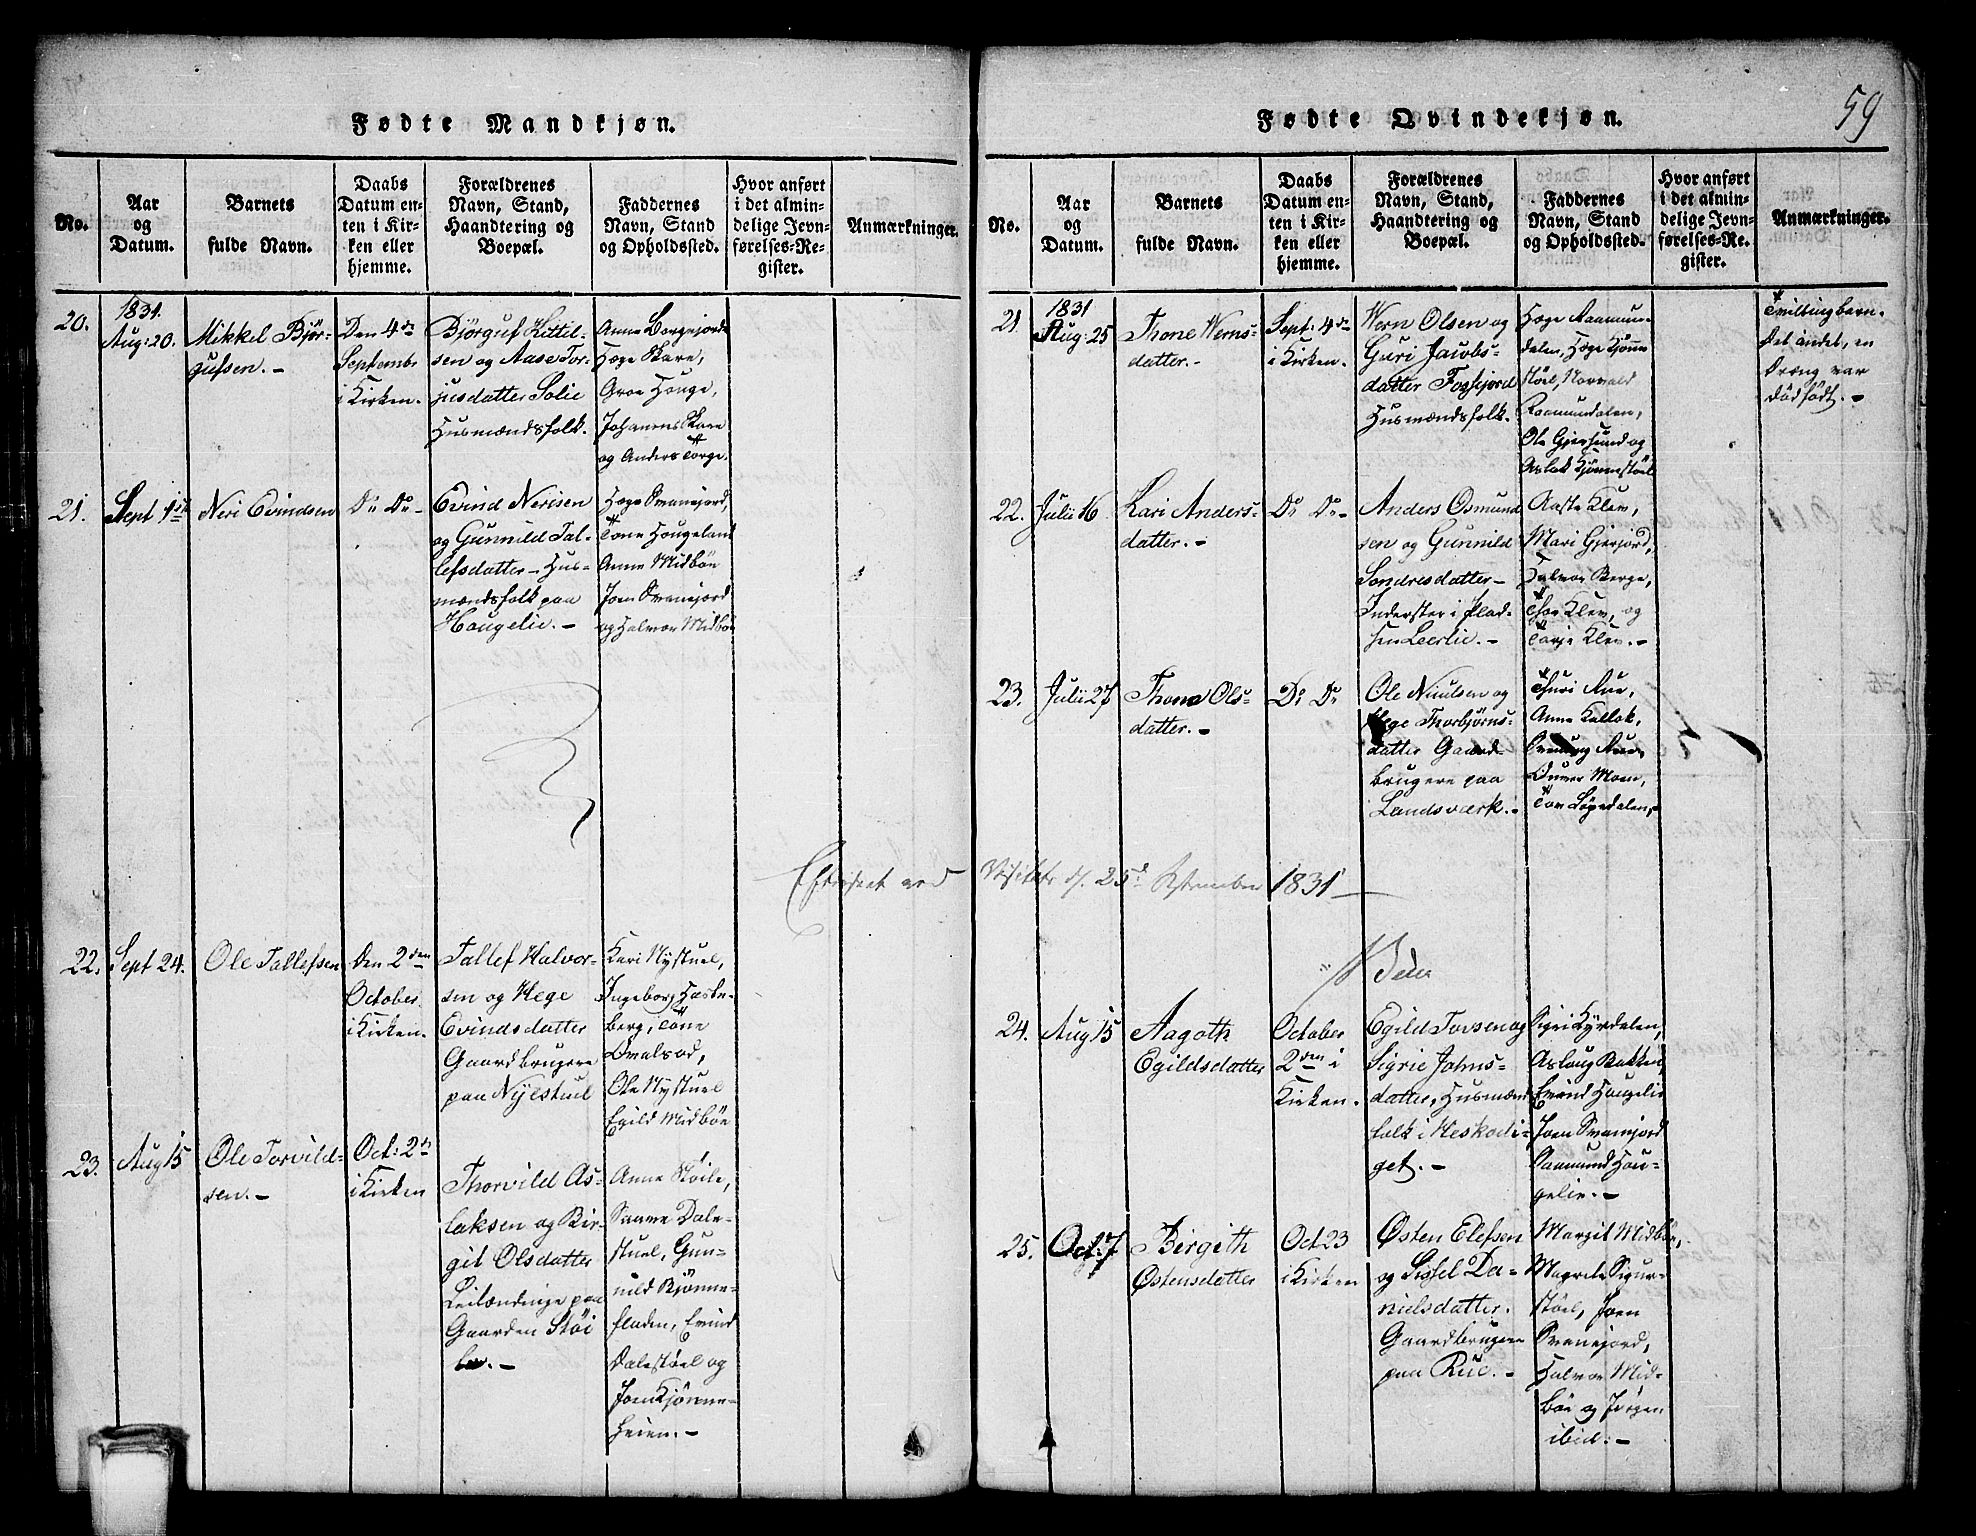 59
Fødte Mandkjøn.
No.
Aar
og
Datum.
Barnets
fulde Navn.
Daabs
Datum en-
ten i Kir-
ken eller
hjemme.
Forældrenes
Navn, Stand,
Haandtering og
Boepæl.
Faddernes
Navn, Stand
og Opholdssted.
Hvor anført
i det almin-
delige Jevn-
førelses-Re-
gister.
Anmærkninger.
20.
1831.
Aug: 20.
Mikkel Bjør-
gufsen. -
Den 4de
Septembr
i Kirken.
Bjørguf Kittil-
sen og Aase Tor-
jusdatter Solie
Husmændsfolk.
Anne Bergejord
Hæge Skare,
Groe Houge,
Johannes Skare
og Anders Torge.
21.
Sept 1ste
Neri Evindsen
Do Do -
Evind Nerisen
og Gunnild Tal-
lefsdatter - Hus-
mændsfolk paa
Hougelie. -
Hæge Svanejord,
Tone Hougeland
Anne Midbøe
Joen Svanejord
og Halvor Midbøe
Efterseet ved
22.
Sept 24.
Ole Tallefsen
Den 2den
October
i Kirken.
Tallef Halvor-
sen og Hege
Evindsdatter
Gaardbrugere
paa Nyestuel
Kari Nystuel,
Ingeborg Haste-
berg, Tone
Omalsod,
Ole Nystuel
Egild Midbøe
23.
Aug 15
Ole Torvild-
sen. -
Oct: 2de
i Kirken
Thorvild As-
laksen og Bir-
git Olsdatter
Leilændinge paa
Gaarden Støi
Anne Støile,
Saave Dale-
stuel, Gun-
nild Kjønne-
fladen, Evind
Dalestøel og
Joen Kjønne-
heien. -
Fødte Qvindekjøn.
No.
Aar
og
Datum.
Barnets
fulde Navn.
Daabs
Datum en-
ten i Kir-
ken eller
hjemme.
Forældrenes
Navn, Stand,
Haandtering og
Boepæl.
Faddernes
Navn, Stand
og Opholdssted.
Hvor anført
i det almin-
delige Jevn-
førelses-Re-
gister.
Anmærkninger.
21.
1831
Aug: 25
Thone Werns-
datter. -
Sept: 4de
i Kirken.
Wern Olsen og
Guri Jacobs-
datter Fossjord
Husmændsfolk.
Hæge Raamun-
dalen, Hæge Kjønne
støel, Norvald
Raamundalen,
Ole Gjersund og
Aslak Kjønnestøel
Tvillingbarn.
Det andet, en
Dreng var
dødfødt. -
22.
Julii 16
Kari Anders-
datter. -
Do Do -
Anders Osmund
sen og Gunnild
Sondresdatter -
Inderster i Plad-
sen Leerlie. -
Aaste Klev,
Mari Gjerjord,
Halvor Berge,
Thor Klev, og
Tarje Klev. -
23.
Julii 27
Thone Ols-
datter. -
Do Do
Ole Niulsen og
Hege Thorbjørns-
datter Gaard-
brugere paa
Landsværk. -
Thuri Aue,
Anne Kallok,
Aue,
Moen,
Tor Løgedalen. -
Visitats d. 25de September 1831 -
24.
Aug 15
Aagoth
Egildsdatter
October
2den i
Kirken.
Egild Tovsen og
Sigrie Johns-
datter, Husmænd
folk i Heskodi-
get. -
Sigri Kyrdalen,
Aslaug Bakken
Evind Hougelie
Joen Svanejord
Saamund Hou-
gelie. -
25.
Oct: 7
Birgith
Østensdatter
Oct 23
i Kirken
Østen Elefsen
og Sissel Da-
nielsdatter.
Gaardbrugere
paa Rue. -
Margit Midbøe,
Magrete Sigur-
støel, Joen
Svanejord,
Halvor Mid-
bøe og Jørgen
ibid: -